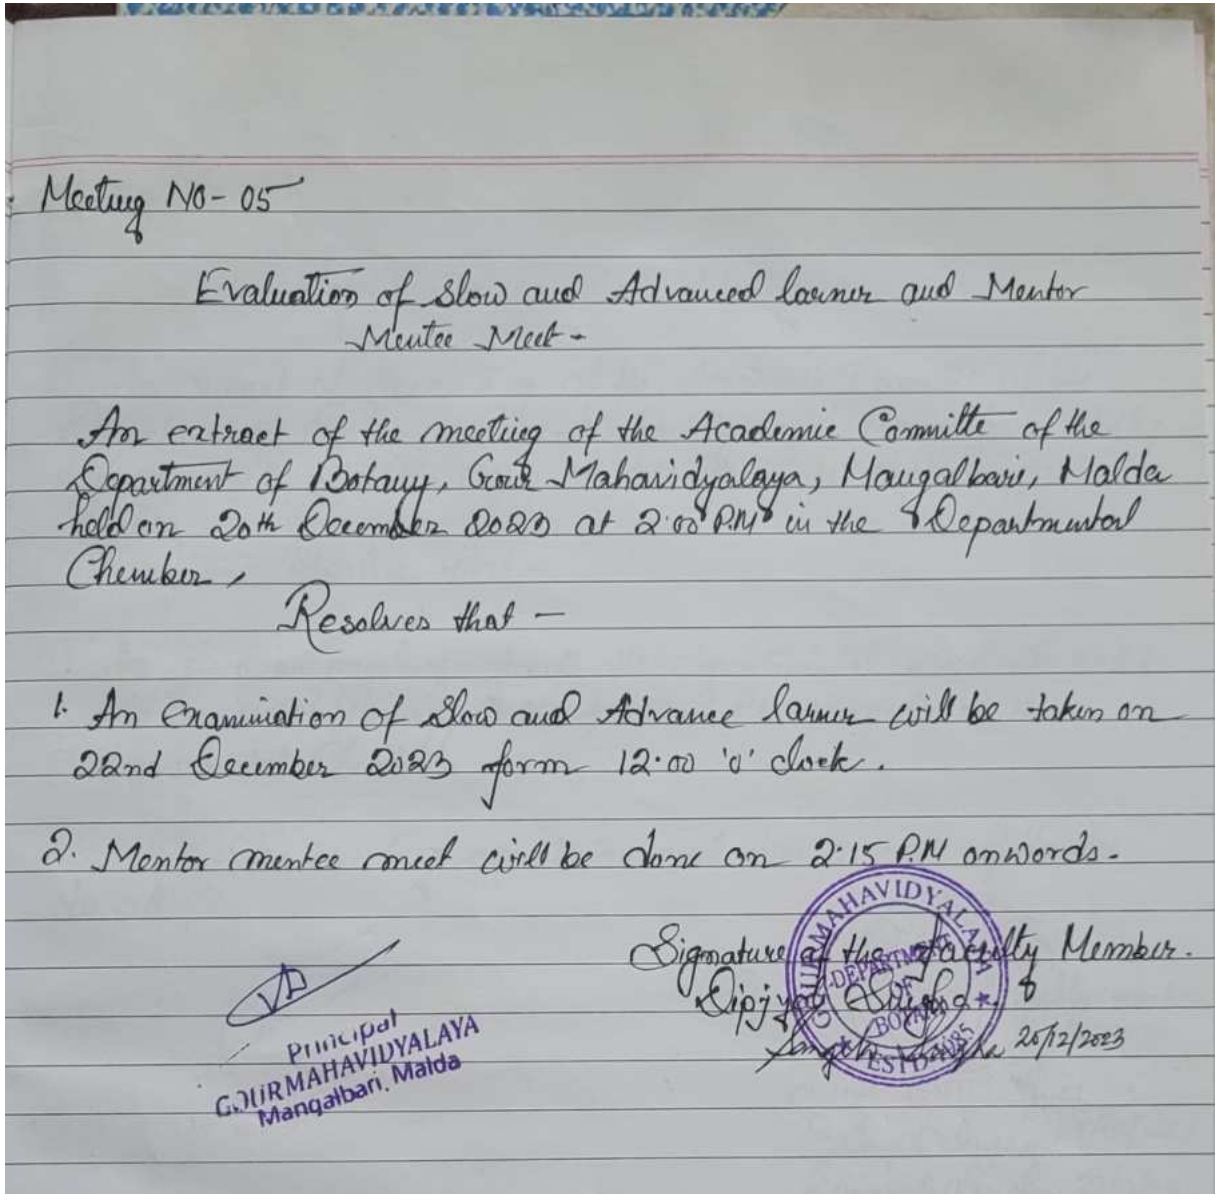 Meeting NO- 05
Evaluation of slow and Advanced larner and Mentor
Mentee Meet -
An extract of the meeting of the Academic Committe of the
Department of Botany, Gour Mahavidyalaya, Mangalbari, Malda
held on 20th December 2023 at 2.00 P.M in the Departmental
Chember,
Resolves that -
1. An Examiniation of Slow and Advance larner will be taken on
22nd December 2023 form 12.00 'o' clock.
2. Mentor mentee meet will be done on 2.15 P.M onwords.
Signature of the Faculty Member.
20/12/2023
Principal
GOURMAHAVIDYALAYA
Mangalbari, Malda
GOURMAHAVIDYALAYA
DEPARTMENT
OF
BOTANY
ESTD-1985